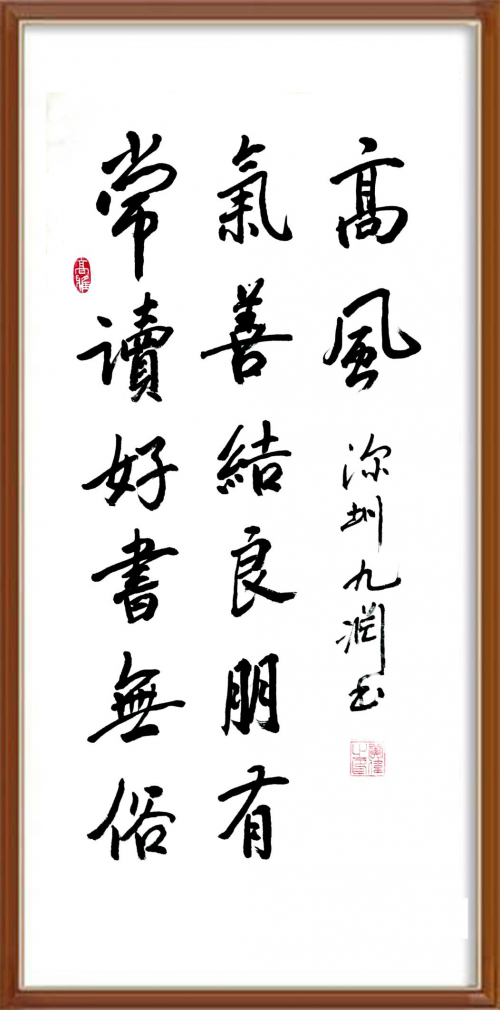 常讀好書無俗
氣善結良朋有
高風
深圳九潤书
高雅